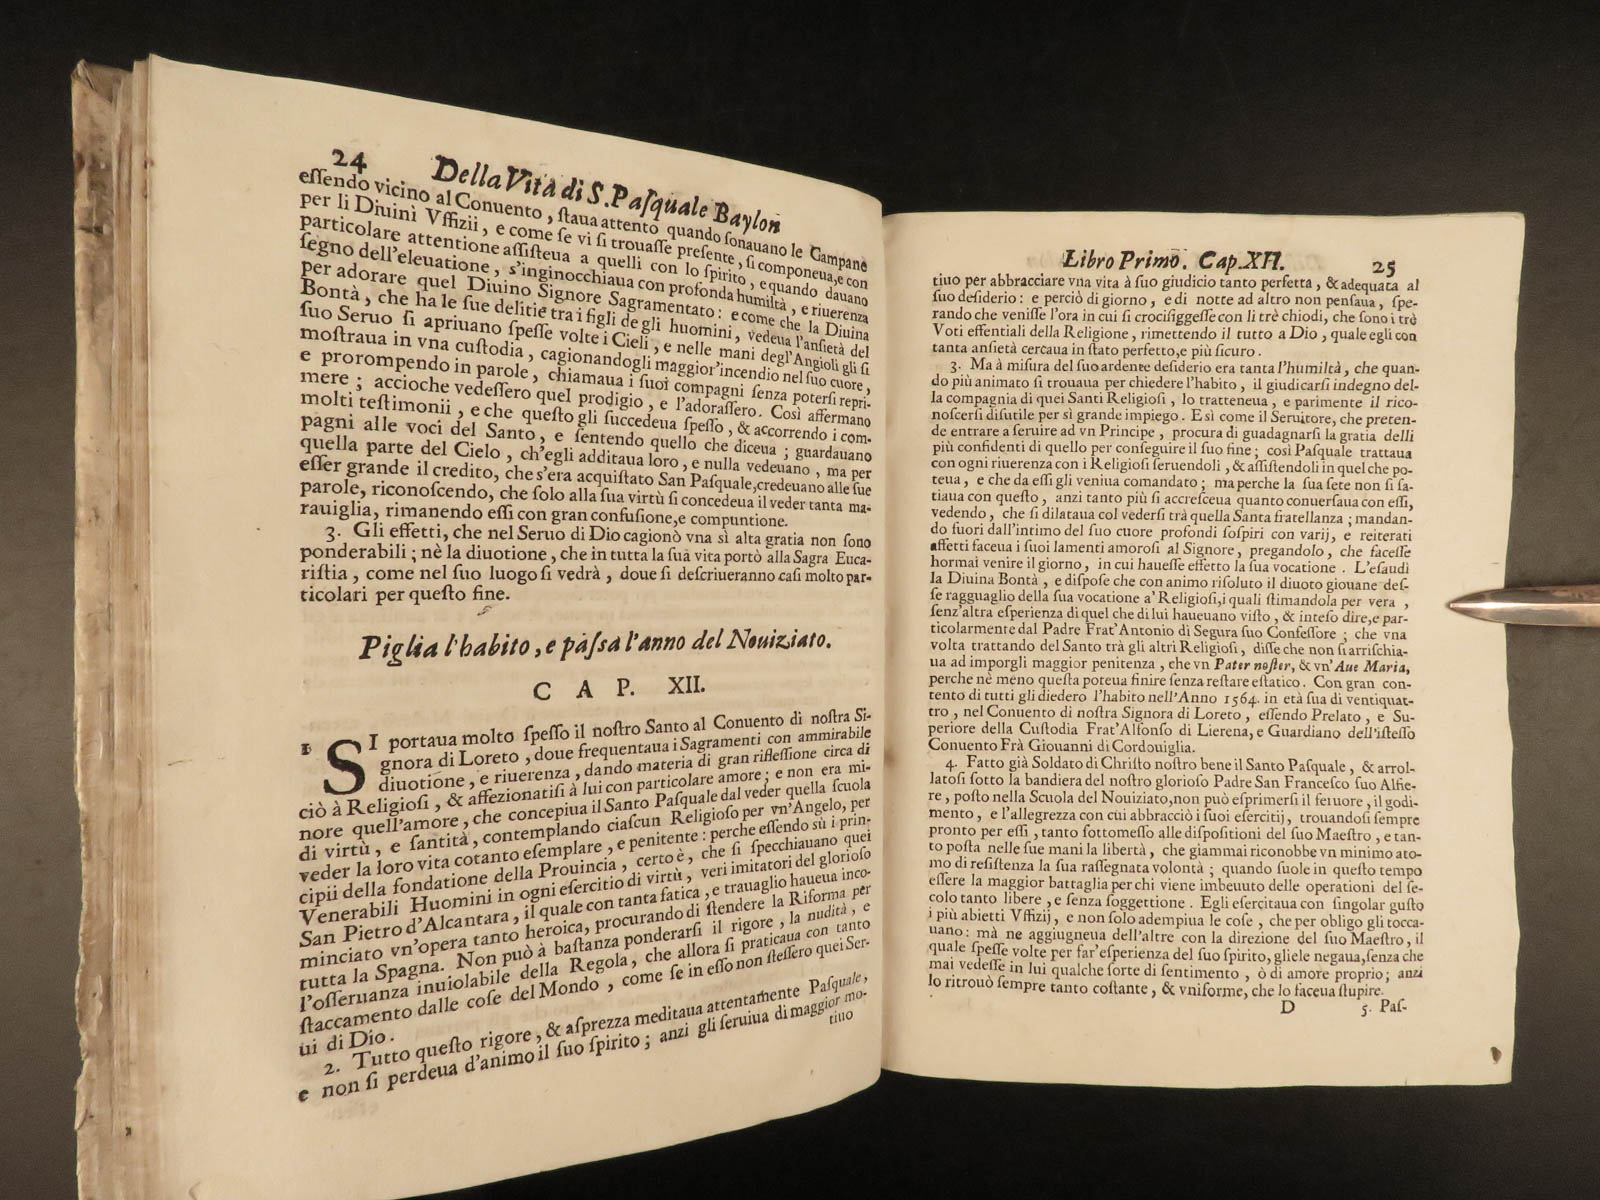 24 Della Vita di S. Paſquale Baylon
eſſendo vicino al Conuento, ſtaua attento quando ſonauano le Campane
per li Diuini Vffizii, e come ſe vi ſi trouaſſe preſente, ſi componeua, e con
particolare attentione aſſiſteua a quelli con lo ſpirito, e quando dauano
ſegno dell'eleuatione, s'inginocchiaua con profonda humiltà, e riuerenza
per adorare quel Diuino Signore Sagramentato: e come che la Diuina
Bontà, che ha le ſue delitie tra i figli de gli huomini, vedeua l'anſietà del
ſuo Seruo ſi apriuano ſpeſſe volte i Cieli, e nelle mani degl'Angioli gli ſi
moſtraua in vna cuſtodia, cagionandogli maggior'incendio nel ſuo cuore,
e prorompendo in parole, chiamaua i ſuoi compagni ſenza poterſi repri-
mere; accioche vedeſſero quel prodigio, e l'adoraſſero. Così affermano
molti teſtimonii, e che queſto gli ſuccedeua ſpeſſo, & accorrendo i com-
pagni alle voci del Santo, e ſentendo quello che diceua; guardauano
quella parte del Cielo, ch'egli additaua loro, e nulla vedeuano, ma per
eſſer grande il credito, che s'era acquiſtato San Paſquale, credeuano alle ſue
parole, riconoſcendo, che ſolo alla ſua virtù ſi concedeua il veder tanta ma-
rauiglia, rimanendo eſſi con gran confuſione, e compuntione.
3. Gli effetti, che nel Seruo di Dio cagionò vna sì alta gratia non ſono
ponderabili; nè la diuotione, che in tutta la ſua vita portò alla Sagra Euca-
riſtia, come nel ſuo luogo ſi vedrà, doue ſi deſcriueranno caſi molto par-
ticolari per queſto fine.
Piglia l'habito, e paſsa l'anno del Nouiziato.
CAP. XII.
1 SI portaua molto ſpeſſo il noſtro Santo al Conuento di noſtra Si-
gnora di Loreto, doue frequentaua i Sagramenti con ammirabile
diuotione, e riuerenza, dando materia di gran rifleſſione circa di
ciò à Religioſi, & affezionatiſi à lui con particolare amore; e non era mi-
nore quell'amore, che concepiua il Santo Paſquale dal veder quella ſcuola
di virtù, e ſantità, contemplando ciaſcun Religioſo per vn'Angelo, per
veder la loro vita cotanto eſemplare, e penitente: perche eſſendo sù i prin-
cipii della fondatione della Prouincia, certo è, che ſi ſpecchiauano quei
Venerabili Huomini in ogni eſercitio di virtù, veri imitatori del glorioſo
San Pietro d'Alcantara, il quale con tanta fatica, e trauaglio haueua inco-
minciato vn'opera tanto heroica, procurando di ſtendere la Riforma per
tutta la Spagna. Non può à baſtanza ponderarſi il rigore, la nudità, e
l'oſſeruanza inuiolabile della Regola, che allora ſi praticaua con tanto
ſtaccamento dalle coſe del Mondo, come ſe in eſſo non ſteſſero quei Ser-
ui di Dio.
2. Tutto queſto rigore, & aſprezza meditaua attentamente Paſquale,
e non ſi perdeua d'animo il ſuo ſpirito; anzi gli ſeruiua di maggior mo-
tiuo
Libro Primo. Cap. XII. 25
tiuo per abbracciare vna vita à ſuo giudicio tanto perfetta, & adequata al
ſuo deſiderio: e perciò di giorno, e di notte ad altro non penſaua, ſpe-
rando che veniſſe l'ora in cui ſi crocifiggeſſe con li trè chiodi, che ſono i trè
Voti eſſentiali della Religione, rimettendo il tutto a Dio, quale egli con
tanta anſietà cercaua in ſtato perfetto, e più ſicuro.
3. Ma à miſura del ſuo ardente deſiderio era tanta l'humiltà, che quan-
do più animato ſi trouaua per chiedere l'habito, il giudicarſi indegno del-
la compagnia di quei Santi Religioſi, lo tratteneua, e parimente il rico-
noſcerſi diſutile per sì grande impiego. E sì come il Seruitore, che preten-
de entrare a ſeruire ad vn Principe, procura di guadagnarſi la gratia delli
più confidenti di quello per conſeguire il ſuo fine; così Paſquale trattaua
con ogni riuerenza con i Religioſi ſeruendoli, & aſſiſtendoli in quel che po-
teua, e che da eſſi gli veniua comandato; ma perche la ſua ſete non ſi ſa-
tiaua con queſto, anzi tanto più ſi accreſceua quanto conuerſaua con eſſi,
vedendo, che ſi dilataua col vederſi trà quella Santa fratellanza; mandan-
do fuori dall'intimo del ſuo cuore profondi ſoſpiri con varij, e reiterati
affetti faceua i ſuoi lamenti amoroſi al Signore, pregandolo, che faceſſe
hormai venire il giorno, in cui haueſſe effetto la ſua vocatione. L'eſaudì
la Diuina Bontà, e diſpoſe che con animo riſoluto il diuoto giouane deſ-
ſe ragguaglio della ſua vocatione a' Religioſi, i quali ſtimandola per vera,
ſenz'altra eſperienza di quel che di lui haueuano viſto, & inteſo dire, e par-
ticolarmente dal Padre Frat'Antonio di Segura ſuo Confeſſore; che vna
volta trattando del Santo trà gli altri Religioſi, diſſe che non ſi arriſchia-
ua ad imporgli maggior penitenza, che vn Pater noſter, & vn' Aue Maria,
perche nè meno queſta poteua finire ſenza reſtare eſtatico. Con gran con-
tento di tutti gli diedero l'habito nell'Anno 1564. in età ſua di ventiquat-
tro, nel Conuento di noſtra Signora di Loreto, eſſendo Prelato, e Su-
periore della Cuſtodia Frat'Alfonſo di Lierena, e Guardiano dell'iſteſſo
Conuento Frà Giouanni di Cordouiglia.
4. Fatto già Soldato di Chriſto noſtro bene il Santo Paſquale, & arrol-
latoſi ſotto la bandiera del noſtro glorioſo Padre San Franceſco ſuo Alfie-
re, poſto nella Scuola del Nouiziato, non può eſprimerſi il feruore, il godi-
mento, e l'allegrezza con cui abbracciò i ſuoi eſercitij, trouandoſi ſempre
pronto per eſſi, tanto ſottomeſſo alle diſpoſitioni del ſuo Maeſtro, e tan-
to poſta nelle ſue mani la libertà, che giammai riconobbe vn minimo ato-
mo di reſiſtenza la ſua raſſegnata volontà; quando ſuole in queſto tempo
eſſere la maggior battaglia per chi viene imbeuuto delle operationi del ſe-
colo tanto libere, e ſenza ſoggettione. Egli eſercitaua con ſingolar guſto
i più abietti Vffizij, e non ſolo adempiua le coſe, che per obligo gli tocca-
uano: mà ne aggiugneua dell'altre con la direzione del ſuo Maeſtro, il
quale ſpeſſe volte per far'eſperienza del ſuo ſpirito, gliele negaua, ſenza che
mai vedeſſe in lui qualche ſorte di ſentimento, ò di amore proprio; anzi
lo ritrouò ſempre tanto coſtante, & vniforme, che lo faceua ſtupire.
D 5. Paſ-